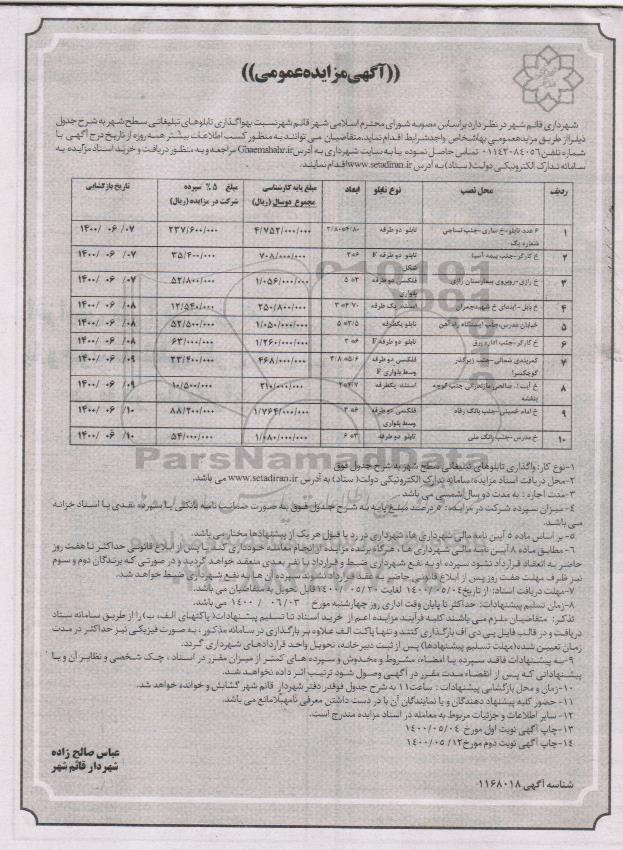 ((آگهی مزایده عمومی))
شهرداری قائم شهر در نظر دارد براساس مصوبه شورای محترم اسلامی شهر قائم شهر نسبت به واگذاری تابلوهای تبلیغاتی سطح شهر به شرح جدول
ذیل از طریق مزایده عمومی به اشخاص واجد شرایط اقدام نماید. متقاضیان می توانند به منظور کسب اطلاعات بیشتر همه روزه از تاریخ درج آگهی با
شماره تلفن ۰۱۱۴۲۰۸۴۰۵۶ تماس حاصل نموده یا به سایت شهرداری به آدرس Ghaemshahr.ir مراجعه و به منظور دریافت و خرید اسناد مزایده به
سامانه تدارک الکترونیکی دولت (ستاد) به آدرس www.setadiran.ir اقدام نمایند.
ردیف محل نصب نوع تابلو ابعاد مبلغ پایه کارشناسی مجموع دوسال (ریال) مبلغ ۵٪ سپرده شرکت در مزایده (ریال) تاریخ بازگشایی
۱ ۶ عدد تابلو-خ ساری-جنب نساجی شماره یک تابلو دو طرفه ۴/۷۵۲/۰۰۰/۰۰۰ ۲۳۷/۶۰۰/۰۰۰ ۱۴۰۰/ ۰۶ /۰۷
۲ خ کارگر-جنب بیمه آسیا تابلو دو طرفه شکل ۷۰۸/۰۰۰/۰۰۰ ۳۵/۴۰۰/۰۰۰ ۱۴۰۰/ ۰۶ /۰۷
۳ خ رازی-روبروی بیمارستان رازی فلکسی دو طرفه بلواری ۱/۰۵۶/۰۰۰/۰۰۰ ۵۲/۸۰۰/۰۰۰ ۱۴۰۰/ ۰۶ /۰۷
۴ خ بابل-ابتدای خ شهید چمران استند یک طرفه ۲۵۰/۸۰۰/۰۰۰ ۱۲/۵۴۰/۰۰۰ ۱۴۰۰/ ۰۶ /۰۸
۵ خیابان مدرس-جنب ایستگاه راه آهن تابلو یکطرفه ۱/۰۵۰/۰۰۰/۰۰۰ ۵۲/۵۰۰/۰۰۰ ۱۴۰۰/ ۰۶ /۰۸
۶ خ کارگر-جنب اداره برق تابلو دو طرفه ۱/۲۶۰/۰۰۰/۰۰۰ ۶۳/۰۰۰/۰۰۰ ۱۴۰۰/ ۰۶ /۰۸
۷ کمربندی شمالی-جنب زیرگذر کوچکسرا فلکسی دو طرفه وسط بلواری ۴۶۸/۰۰۰/۰۰۰ ۲۳/۴۰۰/۰۰۰ ۱۴۰۰/ ۰۶ /۰۹
۸ خ آیت ا.. صالحی مازندرانی جنب کوچه بنفشه استند یکطرفه ۲۱۰/۰۰۰/۰۰۰ ۱۰/۵۰۰/۰۰۰ ۱۴۰۰/ ۰۶ /۰۹
۹ خ امام خمینی-جنب بانک رفاه فلکسی دو طرفه وسط بلواری ۱/۷۶۴/۰۰۰/۰۰۰ ۸۸/۲۰۰/۰۰۰ ۱۴۰۰/ ۰۶ /۱۰
۱۰ خ مدرس-جنب بانک ملی تابلو دو طرفه ۱/۰۸۰/۰۰۰/۰۰۰ ۵۴/۰۰۰/۰۰۰ ۱۴۰۰/ ۰۶ /۱۰
ParsNamadData
۱-نوع کار: واگذاری تابلوهای تبلیغاتی سطح شهر به شرح جدول فوق
۲-محل دریافت اسناد مزایده: سامانه تدارک الکترونیکی دولت (ستاد) به آدرس www.setadiran.ir می باشد.
۳-مدت اجاره: به مدت دو سال شمسی می باشد.
۴- میزان سپرده شرکت در مزایده: ۵ درصد مبلغ پایه به شرح جدول فوق به صورت ضمانت نامه بانکی یا سپرده نقدی یا اسناد خزانه
می باشد.
۵- بر اساس ماده ۵ آیین نامه مالی شهرداری ها، شهرداری در رد یا قبول هر یک از پیشنهادها مختار می باشد.
۶- مطابق ماده ۸ آیین نامه مالی شهرداری ها، هرگاه برنده مزایده از انجام معامله خودداری کند یا پس از ابلاغ قانونی حداکثر تا هفت روز
حاضر به انعقاد قرارداد نشود سپرده او به نفع شهرداری ضبط و قرارداد با نفر بعدی منعقد خواهد گردید و در صورتی که برندگان دوم و سوم
نیز ظرف مهلت هفت روز پس از ابلاغ قانونی حاضر به عقد قرارداد نشوند سپرده آن ها به نفع شهرداری ضبط خواهد شد.
۷-مهلت دریافت اسناد: از تاریخ ۱۴۰۰/۰۵/۰۴ لغایت ۱۴۰۰/۰۵/۲۰ قابل تحویل به متقاضیان می باشد.
۸-زمان تسلیم پیشنهادات: حداکثر تا پایان وقت اداری روز چهارشنبه مورخ ۱۴۰۰ /۰۶/۰۳ می باشد.
تذکر: متقاضیان ملزم می باشند کلیه فرآیند مزایده اعم از خرید اسناد تا تسلیم پیشنهادات (پاکتهای الف، ب) را از طریق سامانه ستاد
دریافت و در قالب فایل پی دی اف بارگذاری کنند و تنها پاکت الف علاوه بر بارگذاری در سامانه مذکور، به صورت فیزیکی نیز حداکثر در مدت
زمان تعیین شده (مهلت تسلیم پیشنهادها) پس از ثبت دبیرخانه، تحویل واحد قراردادهای شهرداری گردد.
۹-به پیشنهادات فاقد سپرده یا امضاء، مشروط و مخدوش و سپرده های کمتر از میزان مقرر در اسناد، چک شخصی و نظایر آن و یا
پیشنهاداتی که پس از انقضاء مدت مقرر در آگهی وصول شود ترتیب اثر داده نخواهد شد.
۱۰-زمان و محل بازگشایی پیشنهادات: ساعت ۱۱ به شرح جدول فوق در دفتر شهردار قائم شهر گشایش و خوانده خواهد شد.
۱۱- حضور کلیه پیشنهاد دهندگان و یا نمایندگان آن با در دست داشتن معرفی نامه بلامانع می باشد.
۱۲- سایر اطلاعات و جزئیات مربوط به معامله در اسناد مزایده مندرج است.
۱۳-چاپ آگهی نوبت اول مورخ ۱۴۰۰/۰۵/۰۴
۱۴-چاپ آگهی نوبت دوم مورخ ۱۴۰۰/۰۵/۱۲
عباس صالح زاده
شهردار قائم شهر
شناسه آگهی ۱۱۶۸۰۱۸